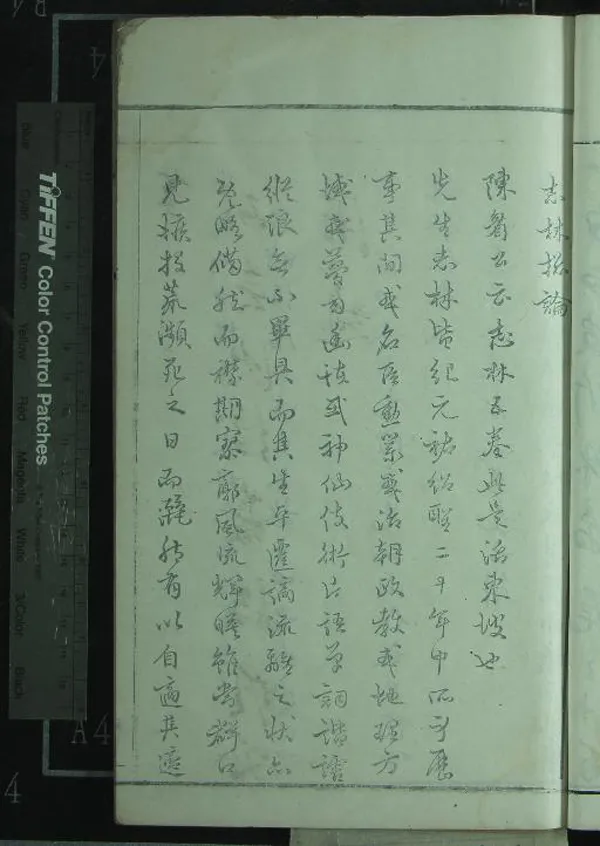 志林總論
陳眉公云志林五卷此是活東坡也
先生志林皆紀元祐紹聖二十年中所身歷
事其間或名臣勳業或治朝政教或地理方
域或夢幻幽怪或神仙伎術片語單詞諧謔
縱浪無不畢具而其生平遷謫流離之狀亦
既略備然而襟期寥廓風流輝暎雖當群口
見嫉投荒瀕死之日而灑然有以自適其適
TIFFEN Color Control Patches
Blue Cyan Green Yellow Red Magenta White 3/Color Black
A4
4